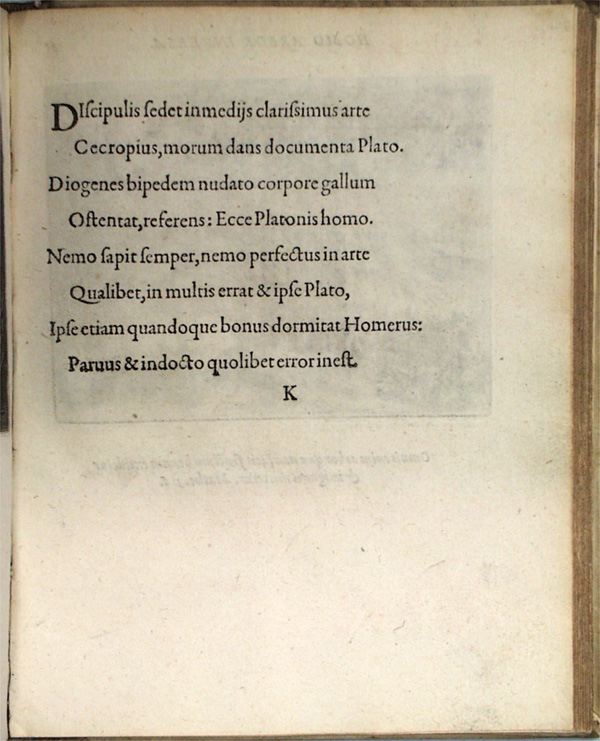 DIſcipulis ſedet in medijs clariſsimus arte
Cecropius, morum dans documenta Plato.
Diogenes bipedem nudato corpore gallum
Oſtentat, referens: Ecce Platonis homo.
Nemo ſapit ſemper, nemo perfectus in arte
Qualibet, in multis errat & ipſe Plato,
Ipſe etiam quandoque bonus dormitat Homerus:
Paruus & indocto quolibet error ineſt.
K